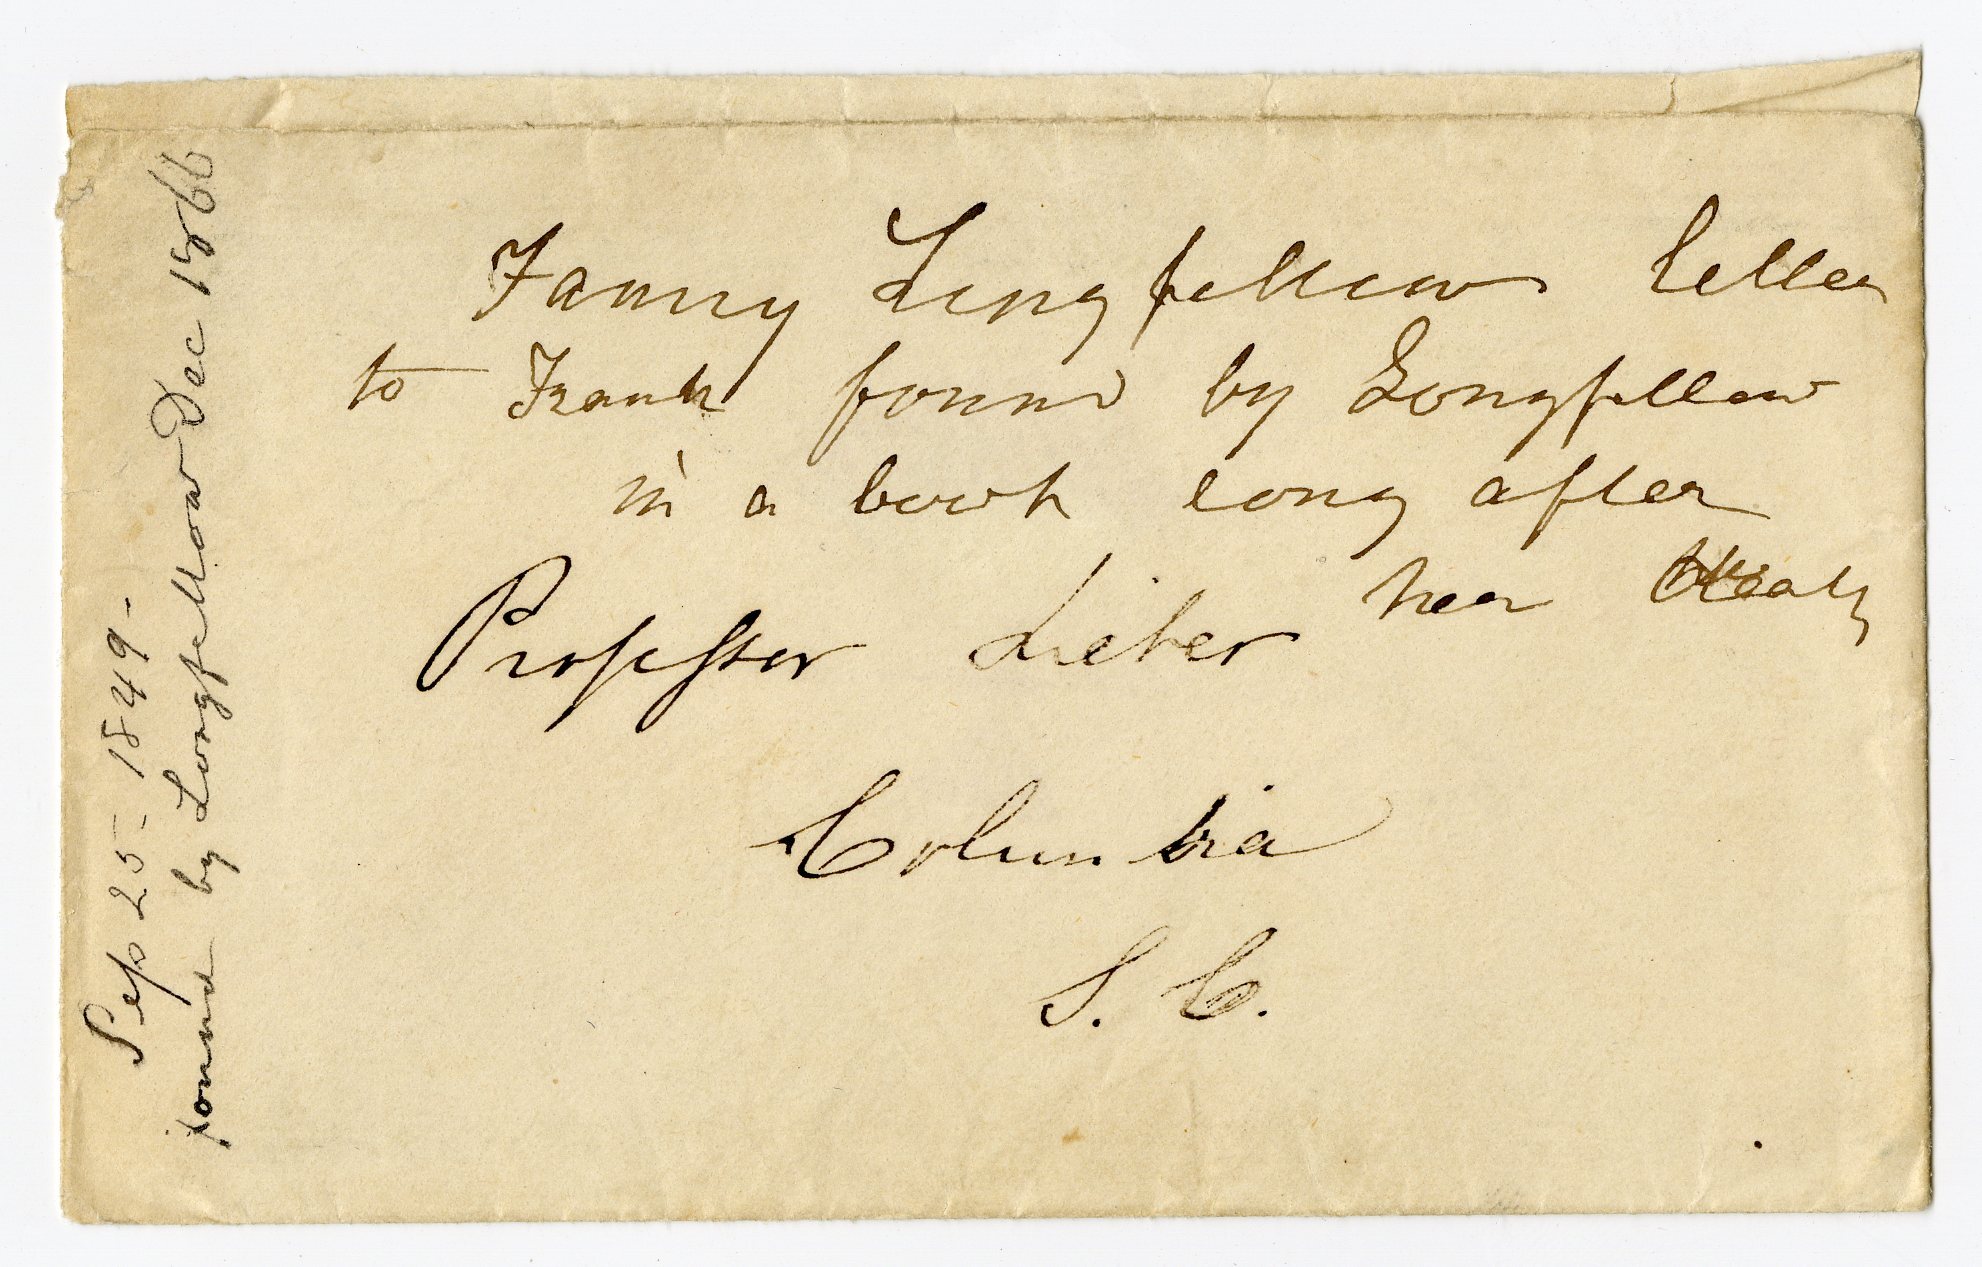 Fanny Longfellow letter
to Frank found by Longfellow
in a book long after
her Death
Professor Lieber
Columbia
S. C.
Sep 25 - 1849 -
found by Longfellow Dec 1866